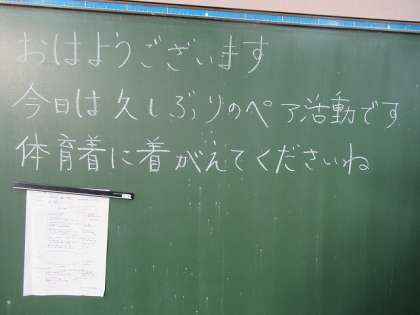 おはようございます
今日は久しぶりのペア活動です
体育着に着がえてくださいね